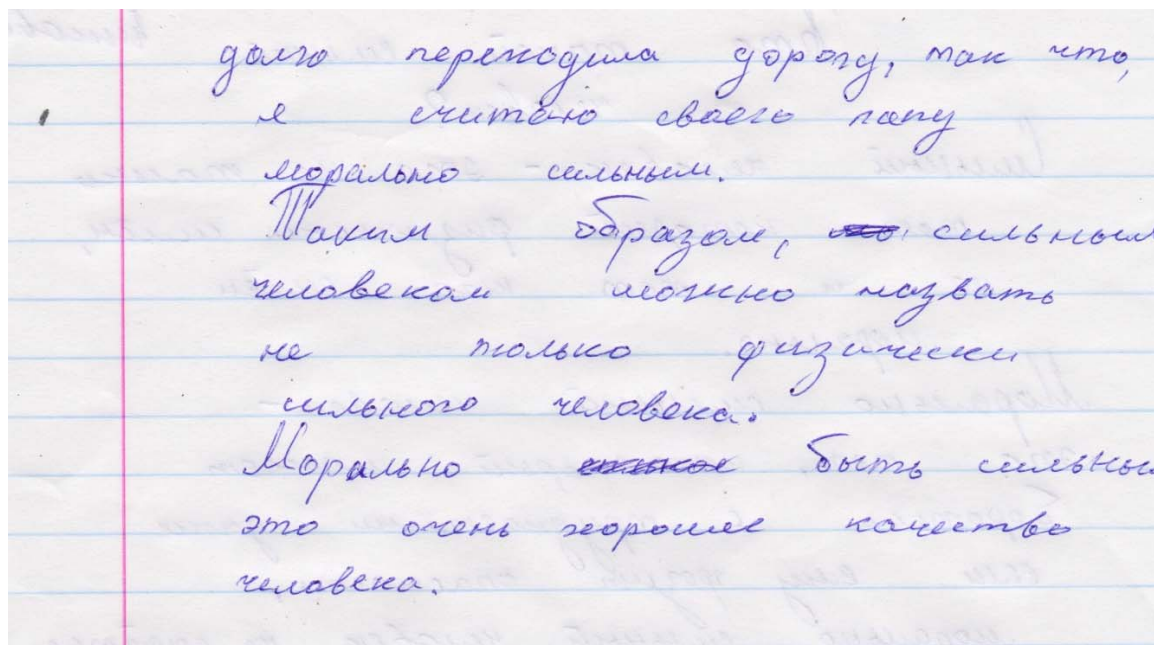 долго переходила дорогу, так что,
я считаю своего папу
морально сильным.
Таким образом, сильным
человеком можно назвать
не только физически
сильного человека.
Морально быть сильным
это очень хорошее качество
человека.